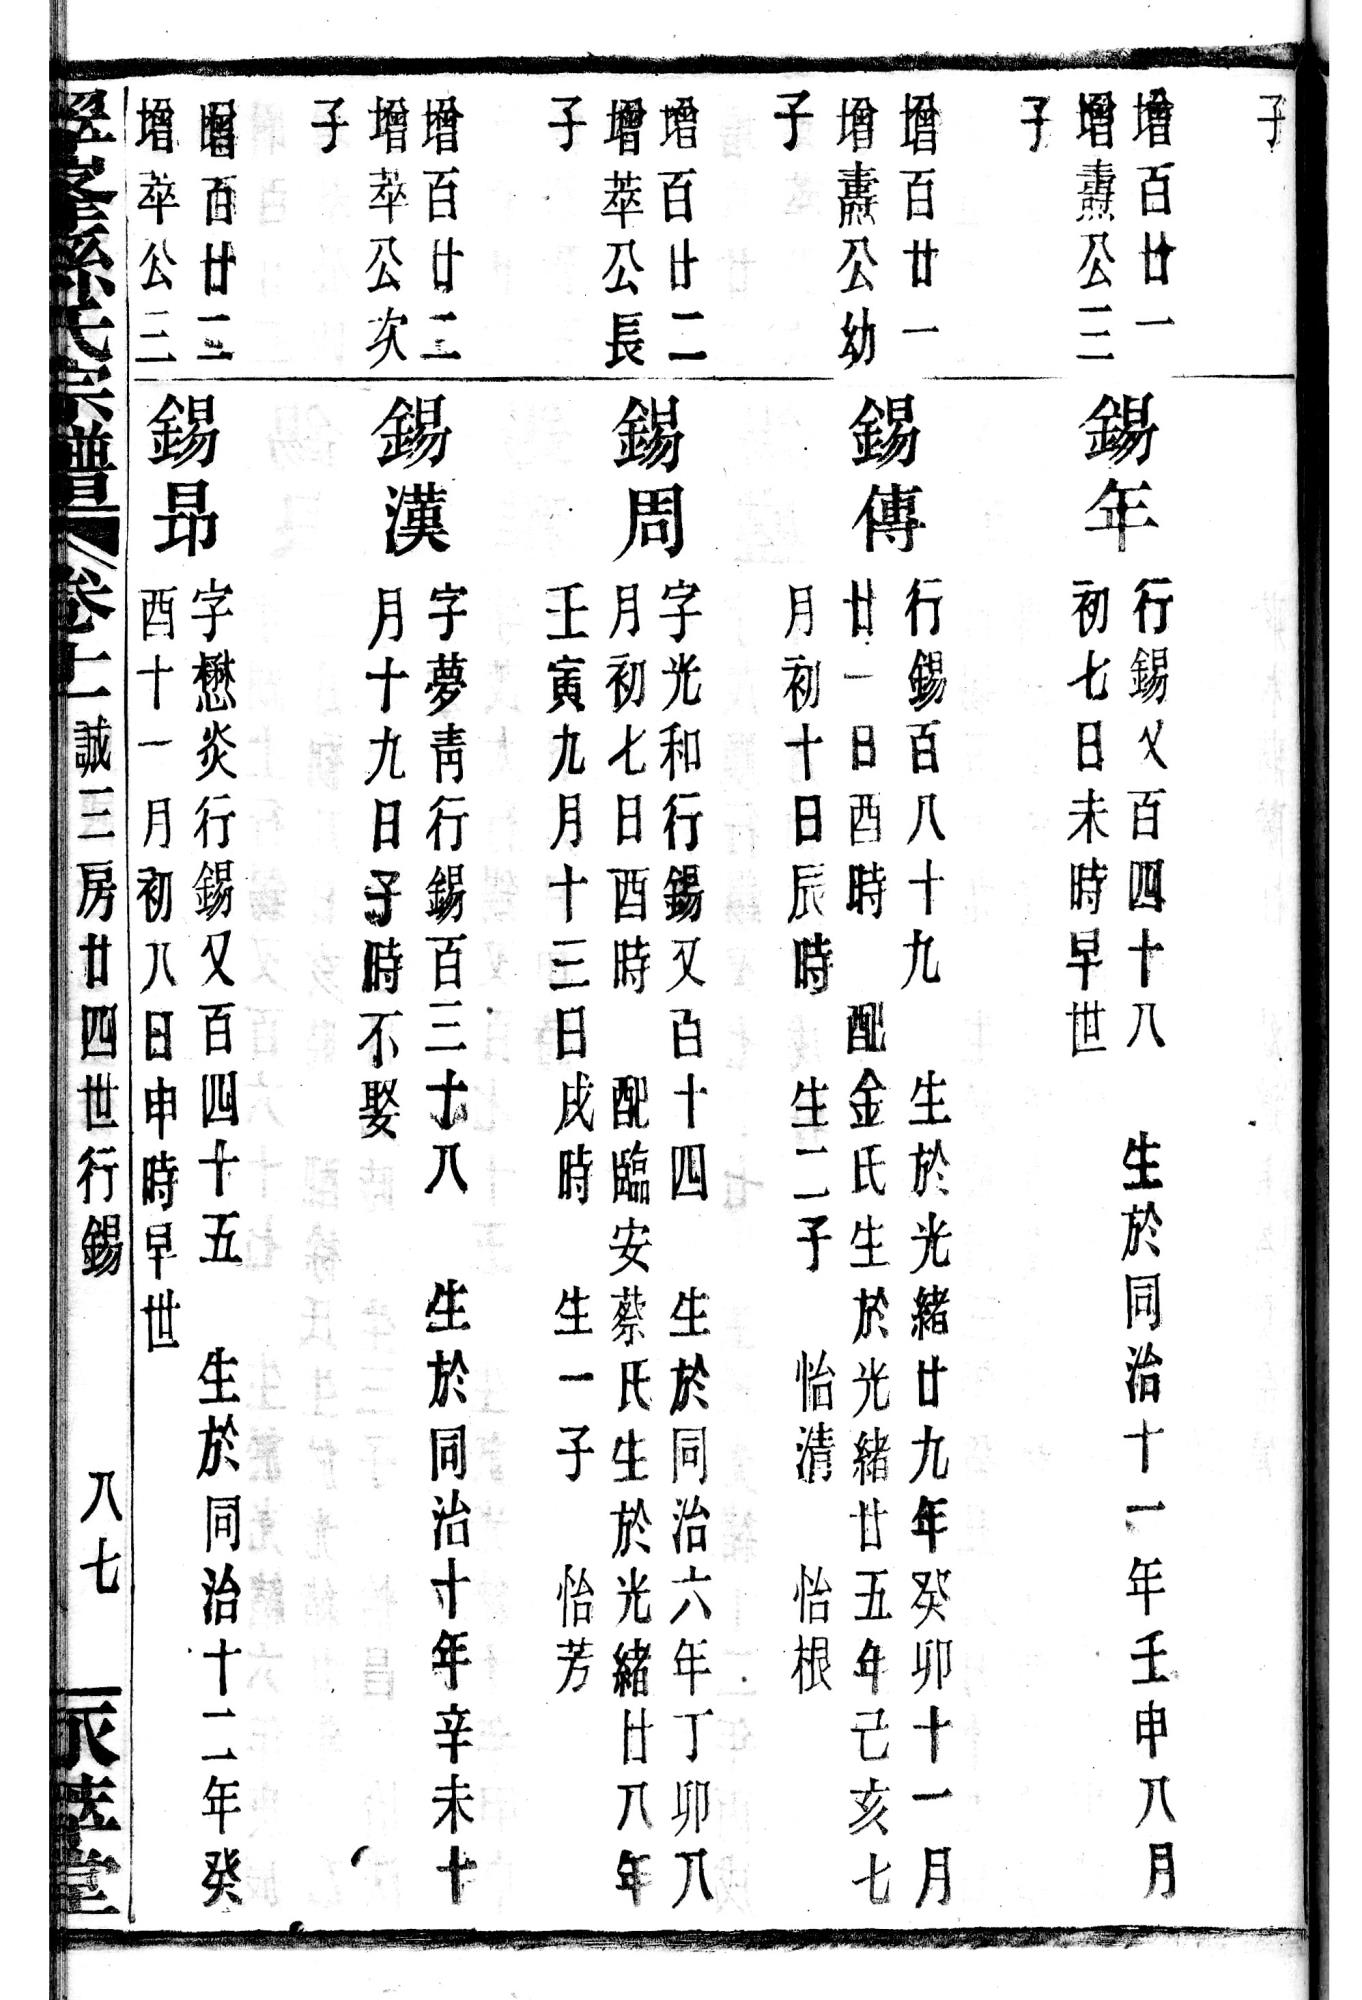 子
增百廿一
增燾公三
子
錫年
行錫又百四十八 生於同治十一年壬申八月
初七日未時早世
增百廿一
增燾公幼
子
錫傳
行錫百八十九 生於光緒廿九年癸卯十一月
廿一日酉時 配金氏生於光緒廿五年己亥七
月初十日辰時 生二子 怡清 怡根
增百廿二
增萃公長
子
錫周
字光和行錫又百十四 生於同治六年丁卯八
月初七日酉時 配臨安蔡氏生於光緒廿八年
壬寅九月十三日戌時 生一子 怡芳
增百廿二
增萃公次
子
錫漢
字夢青行錫百三十八 生於同治十年辛未十
月十九日子時不娶
增百廿二
增萃公三
錫昂
字懋炎行錫又百四十五 生於同治十二年癸
酉十一月初八日申時早世
孫氏宗譜 卷十一 誠三房廿四世行錫 八七 堂